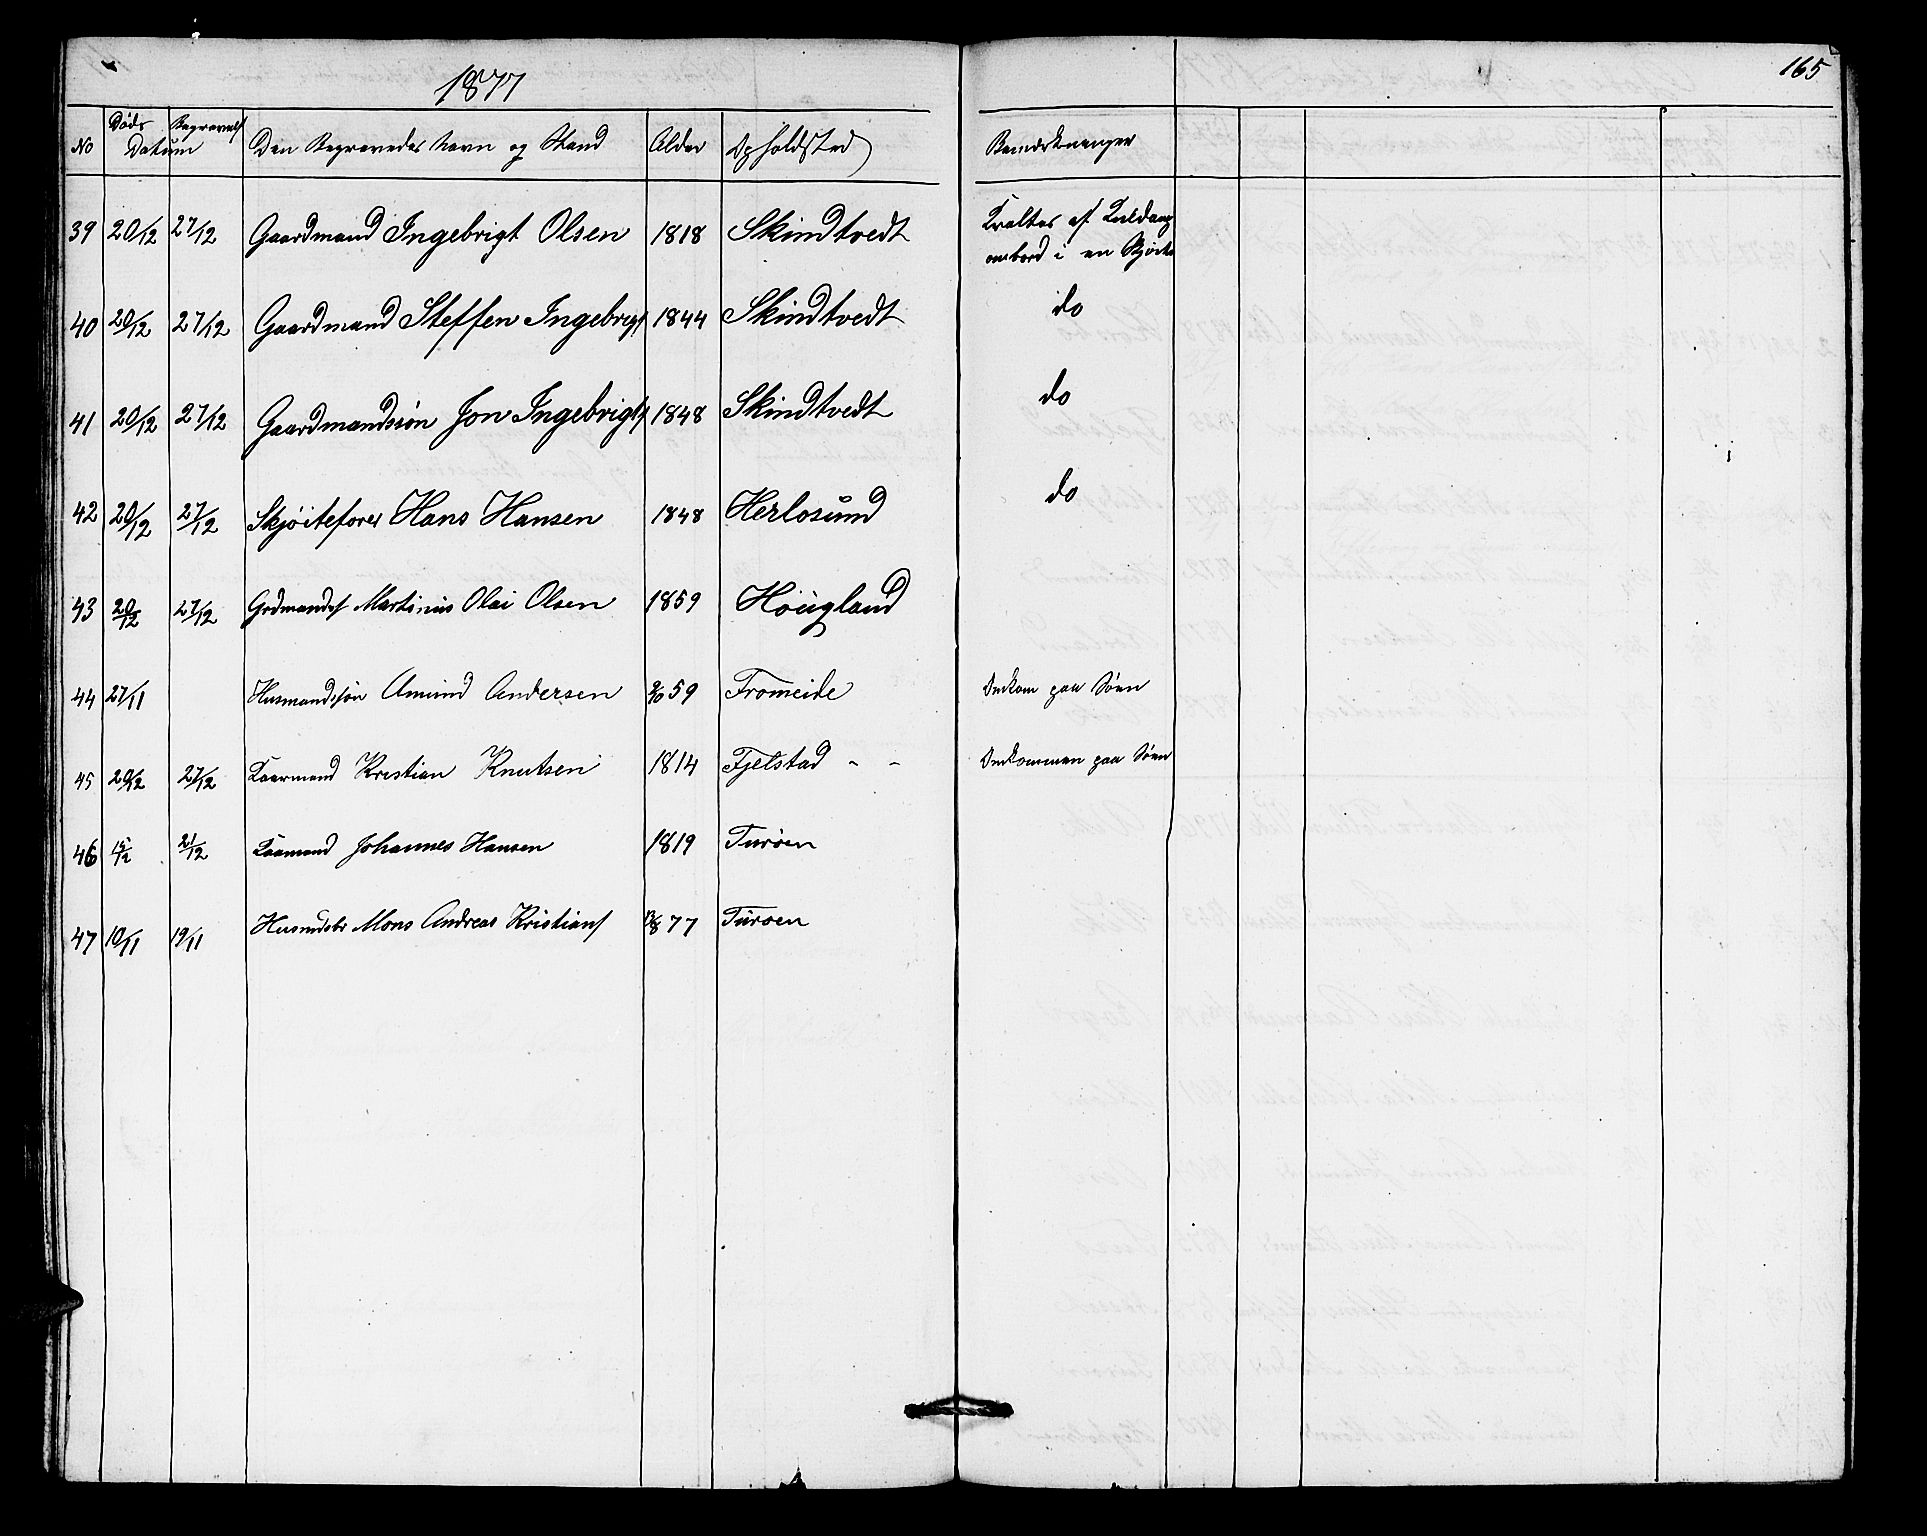 165
1877
No Döds Datum Begravels Den Begravedes Navn og Stand Alder Opholdsted Bemærkninger
39 20/12 27/12 Gaardmand Ingebrigt Olsen 1818 Skindtvedt Kvaltes af Kuldamp
ombord i en Skjöite
40 20/12 27/12 Gaardmand Steffen Ingebrigt 1844 Skindtvedt do
41 20/12 27/12 Gaardmandssön Jon Ingebrigts 1848 Skindtvedt do
42 20/12 27/12 Skjöitefører Hans Hansen 1848 Herlosund do
43 20/12 27/12 Grdmands Martinius Olai Olsen 1859 Höugland
44 27/11 Husmandssön Amund Andersen 59 Fromeide Omkom paa Söen
45 20/12 27/12 Kaarmand Kristian Knutsen 1814 Fjelstad - - Omkommen paa Söen
46 21/12 Kaarmand Johannes Hansen 1819 Turöen
47 10/11 19/11 Mons Andreas Kristians 13/8 77 Turoen